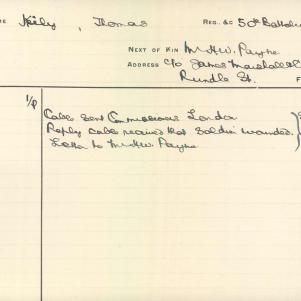 Kiely, Thomas REG. &C 50th Battalion
NEXT OF KIN Mr H.W. Payne
ADDRESS c/o James Marshall & C
Rundle St.
Cable sent Commissioner London
Reply cable received that soldier wounded.
Letter to Mr H.W. Payne